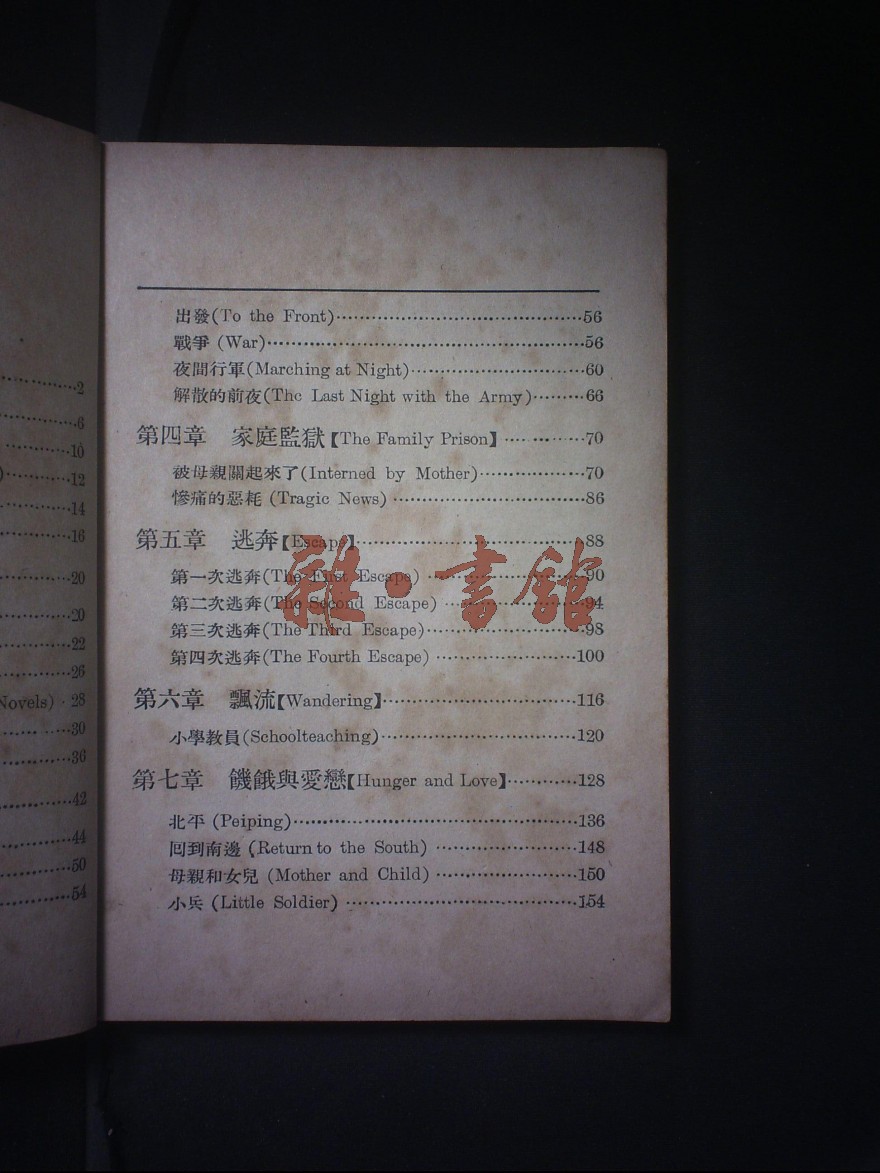 2
6
10
12
14
16
20
20
22
26
Novels) 28
30
36
42
44
50
54
出發(To the Front)························56
戰爭 (War)························56
夜間行軍(Marching at Night)························60
解散的前夜(The Last Night with the Army)·········66
第四章 家庭監獄【The Family Prison】············70
被母親關起來了(Interned by Mother)···············70
慘痛的惡耗 (Tragic News)························86
第五章 逃奔【Escape】························88
第一次逃奔(The First Escape)···············90
第二次逃奔(The Second Escape)···············94
第三次逃奔(The Third Escape)···············98
第四次逃奔(The Fourth Escape)···············100
第六章 飄流【Wandering】························116
小學教員(Schoolteaching)························120
第七章 饑餓與愛戀【Hunger and Love】············128
北平 (Peiping)························136
回到南邊 (Return to the South)···············148
母親和女兒 (Mother and Child)···············150
小兵 (Little Soldier)························154
雜·書館